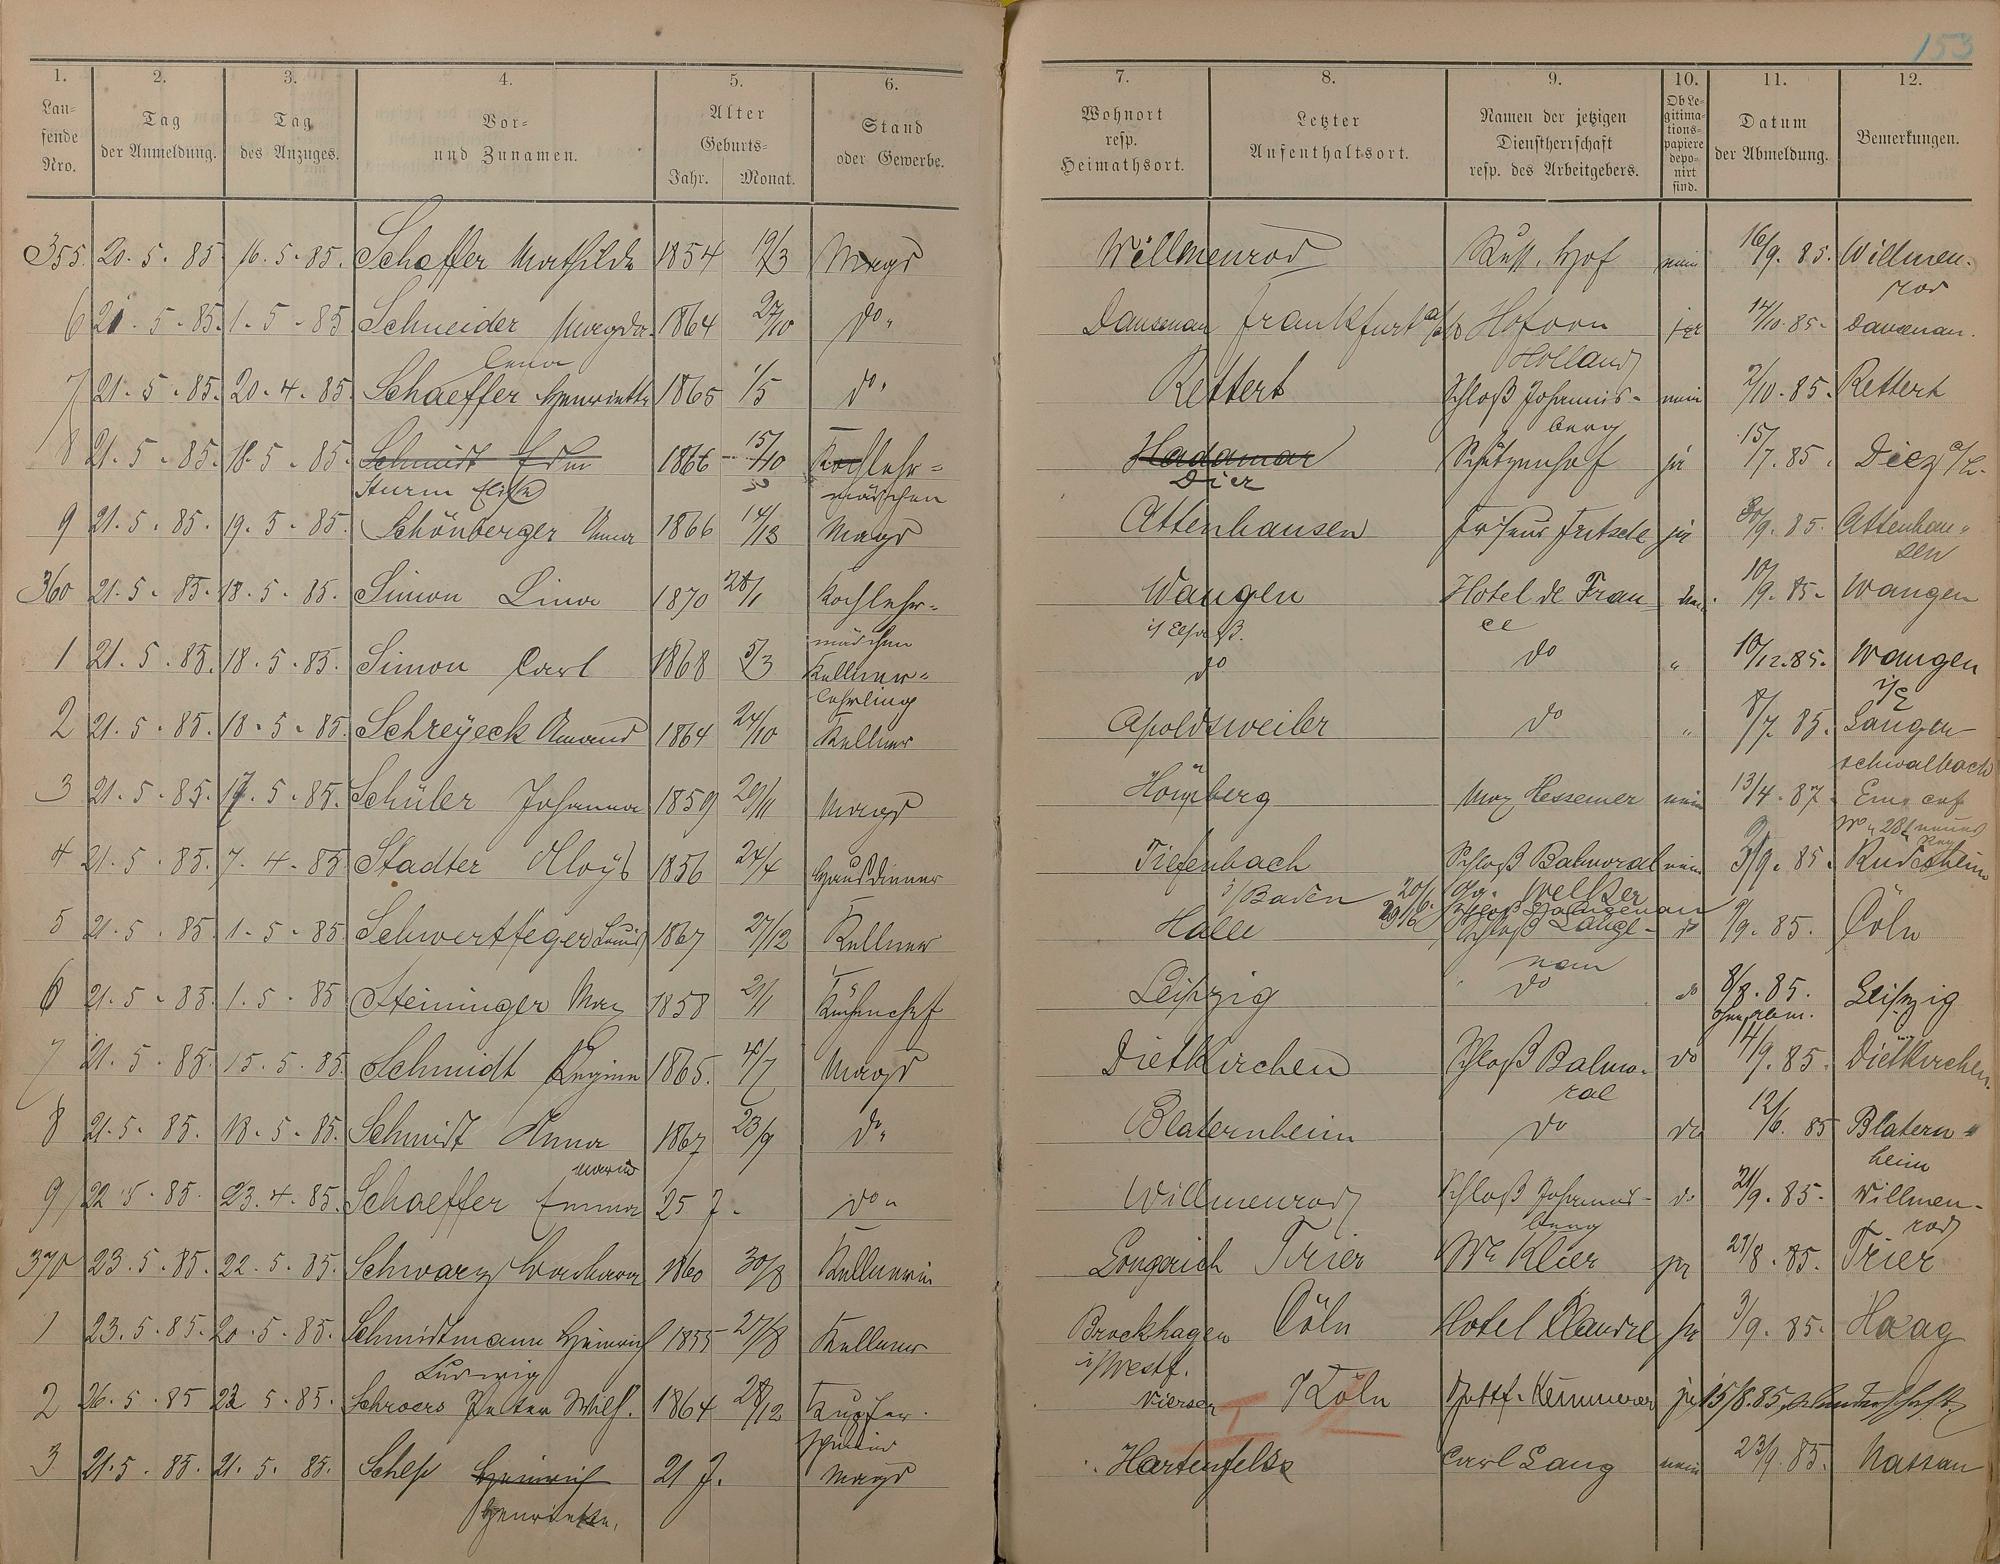 153
1. 2. 3. 4. 5. 6. 7. 8. 9. 10. 11. 12.
Lau-
fende
Nro.
Tag
der Anmeldung.
Tag
des Anzuges.
Vor-
und Zunamen.
Alter
Geburts-
Jahr. Monat.
Stand
oder Gewerbe.
Wohnort
resp.
Heimathsort.
Letzter
Aufenthaltsort.
Namen der jetzigen
Dienstherrschaft
resp. des Arbeitgebers.
Ob Le-
gitima-
tions-
papiere
depo-
nirt
sind.
Datum
der Abmeldung.
Bemerkungen.
355 20. 5. 85 16. 5. 85. Schaffer Mathilde 1854 19/3 Magd Willmenrod Russ. Hof nein 16/9. 85. Willmen-
rod
6 21. 5. 85. 1. 5. 85 Schneider Magda- 1864 27/10 do. Dausenau Frankfurt Hof von ja 14/10. 85. Dausenau.
lena Holland
7 21. 5. 85. 20. 4. 85 Schaeffer Henriette 1865 1/5 do. Rettert Schloß Johannis- nein 2/10. 85. Rettert
berg
8 21. 5. 85. 18. 5. 85. Schmidt 1866 15/10 Kochlehr- Hadamar Schützenhof ja 15/7. 85. Diez a/L.
Sturm Elise mädchen Dier
9 21. 5. 85. 19. 5. 85. Schönberger Anna 1866 Magd Attenhausen Friseur Fritsche ja 30/9. 85. Attenhau-
sen
360 21. 5. 85. 18. 5. 85. Simon Lina 1870 28/1 Kochlehr- Wangen Hotel de Fran 10/9. 85. Wangen
mädchen i/ Elsaß. ce
1 21. 5. 85. 18. 5. 85. Simon Carl 1868 5/3 Kellner- do do " 10/12. 85. Wangen
lehrling i/E
2 21. 5. 85. 18. 5. 85. Schreyeck Amand 1864 24/10 Kellner Apoldsweiler do " 8/7. 85. Langen
schwalbach
3 21. 5. 85. 17. 5. 85. Schüler Johanna 1859 29/11 Magd Hömberg Max Hessemer nein 13/4. 87. Ems auf
4 21. 5. 85. 7. 4. 85 Stadter Aloÿs 1856 24/4 Hausdiener Tiefenbach Schloß Balmoral nein 3/9. 85. Rüdesheim
i/Baden Welker
5 21. 5. 85 1. 5. 85 Schwertfeger Louis 1867 27/12 Kellner Halle Schloß Lange- do 9/9. 85. Cöln
nau
6 21. 5. 85. 1. 5. 85 Steininger Max 1858 2/1 Küchenchef Leipzig do do 8/8. 85. Leipzig
7 21. 5. 85 15. 5. 85. Schmidt Regina 1865. 4/7 Magd Dietkirchen Schloß Balmo- do 14/9. 85. Dietkirchen.
ral
8 21. 5. 85. 18. 5. 85. Schmidt Anna 1867 23/9 do. Blaternheim do do 12/6. 85 Blatern-
Maria heim
9 22. 5. 85. 23. 4. 85. Schaeffer Emma 25 J. do. Willmenrod Schloß Johannis- do 21/9. 85. Willmen-
berg rod
370 23. 5. 85. 22. 5. 85. Schwarz Barbara 1860 30/8 Kellnerin Longuich Trier We Klier ja 21/8. 85. Trier
1 23. 5. 85. 20. 5. 85. Schmidtmann Heinrich 1855 27/8 Kellner Brockhagen Cöln Hotel ja 3/9. 85. Haag
Ludwig i/Westf.
2 26. 5. 85 22 5. 85. Schroers Peter Wilh. 1864 28/12 Kupfer- Viersen Köln ja 15/8. 85 Wanderschaft
schmied
3 21. 5. 85. 21. 5. 85. Heinrich 21 J. Magd Hartenfels Carl Lang nein 23/9. 85. Nassau
Henriette.